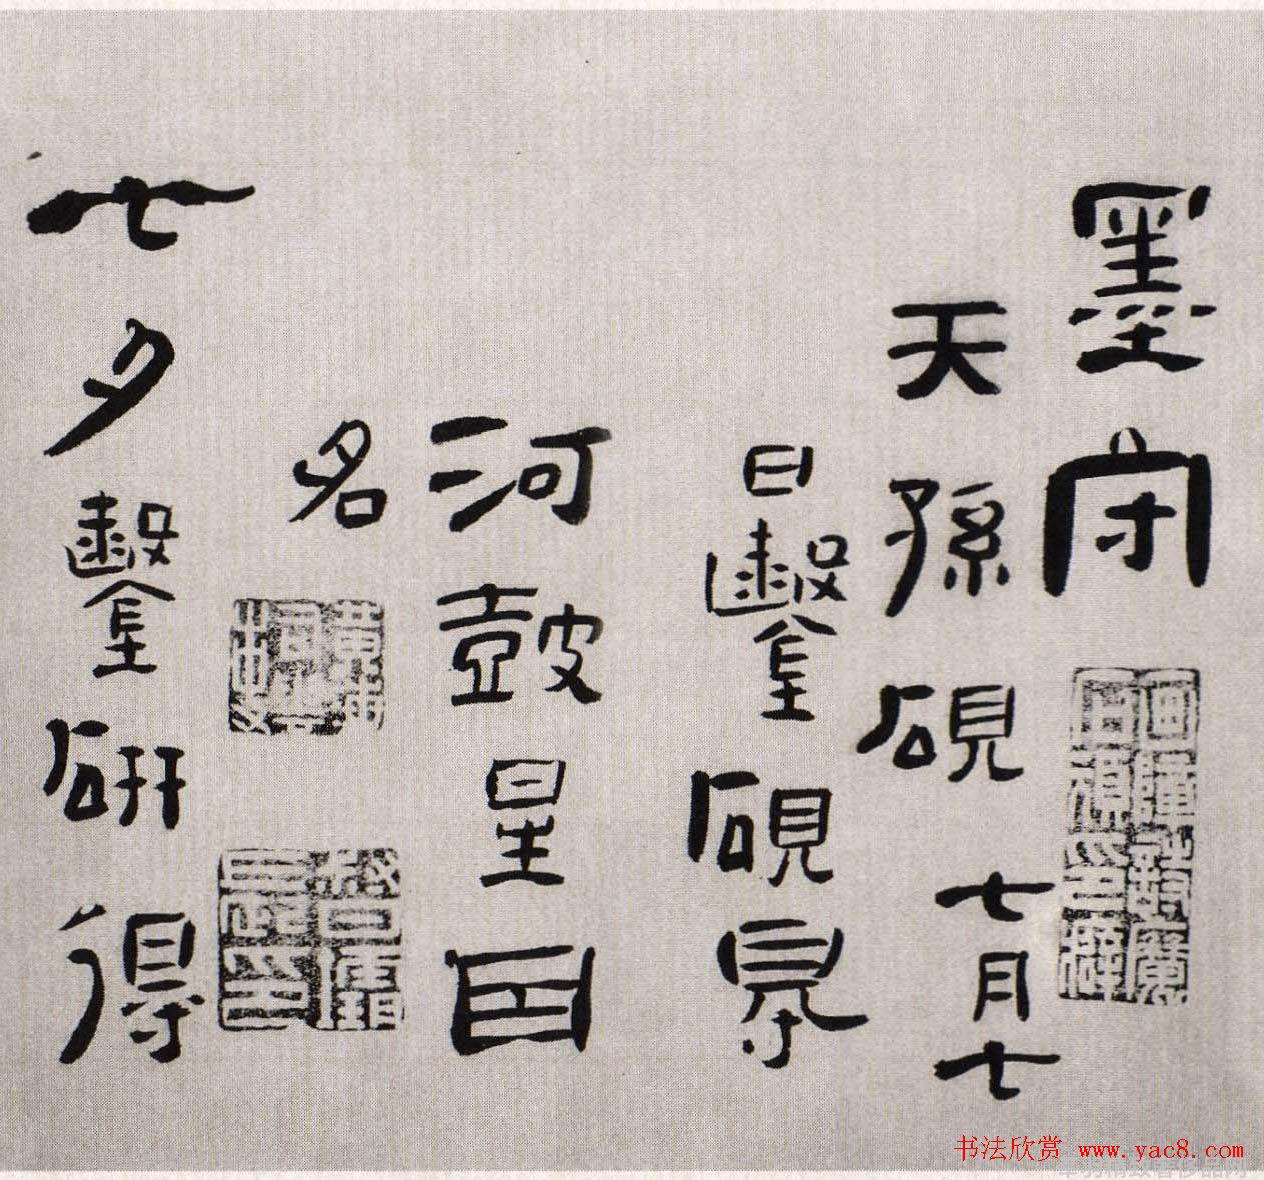 墨守
天孫硯七月七
日鑿硯㝵
河鼓星囙
名
七夕鑿研得
书法欣赏 www.yac8.com